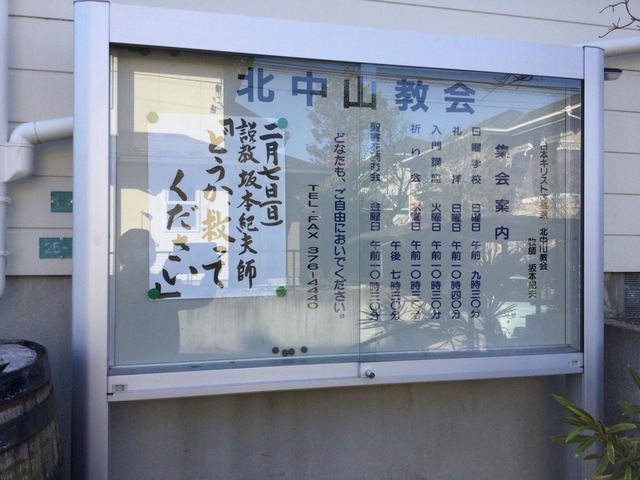 北中山教会
日本キリスト教団 北中山教会
牧師 坂本紀夫
集会案内
日曜学校 日曜日 午前 九時三〇分
礼拝 日曜日 午前一〇時四〇分
入門講座 火曜日 午前一〇時三〇分
祈り会 水曜日 午前一〇時三〇分
午後 七時三〇分
聖書を読む会 金曜日 午前一〇時三〇分
どなたも、ご自由においでください。
TEL・FAX 376-4440
二月七日(日)
説教 坂本紀夫師
「どうか救って
ください」